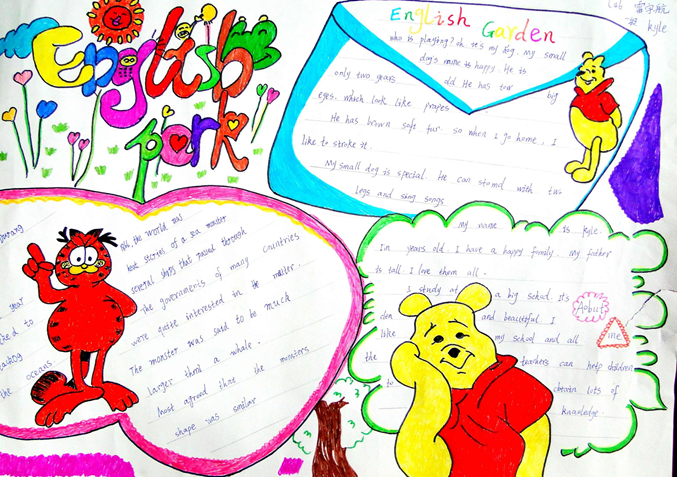 English
park
English Garden
kyle
who is playing? oh it's my dog. My small
dog's name is happy. He is
only two years old He has tow big
eyes. which look like
He has brown soft fur. so when I go home, I
like to stroke it.
My small dog is special. He can stand with two
legs and sing songs.
the world was
stories of a sea monster
several ships that passed through
The governments of many countries
were quite interested in the matter.
The monster was said to be much
larger than a whale.
Most agreed that the monsters
shape was similar
year
to
the oceans.
my name is kyle.
In years old. I have a happy family. My father
is tall. I love them all.
I study at a big school. Its
den and beautiful I
like my school and all
the teachers can help children
to obtain lots of
knowledge.
Aobut
me